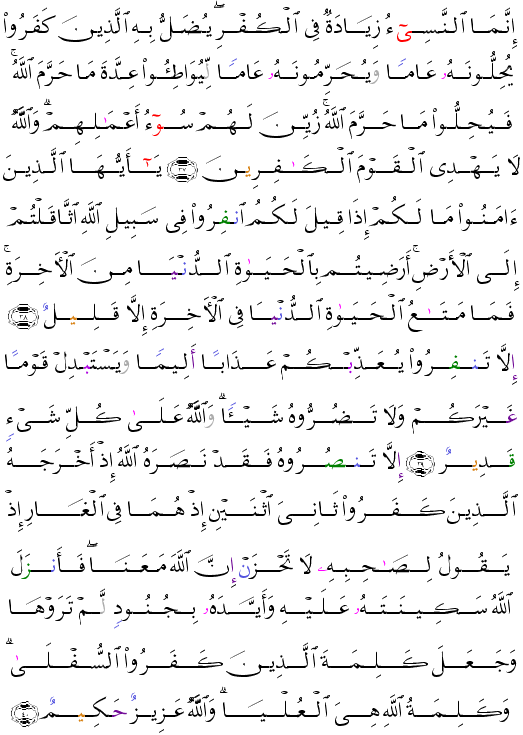 إِنَّمَا ٱلنَّسِىٓءُ زِيَادَةٌ فِى ٱلْكُفْرِ ۖ يُضَلُّ بِهِ ٱلَّذِينَ كَفَرُوا۟
يُحِلُّونَهُۥ عَامًا وَيُحَرِّمُونَهُۥ عَامًا لِّيُوَاطِـُٔوا۟ عِدَّةَ مَا حَرَّمَ ٱللَّهُ ۚ
فَيُحِلُّوا۟ مَا حَرَّمَ ٱللَّهُ ۚ زُيِّنَ لَهُمْ سُوٓءُ أَعْمَـٰلِهِمْ ۗ وَٱللَّهُ
لَا يَهْدِى ٱلْقَوْمَ ٱلْكَـٰفِرِينَ ٣٧ يَـٰٓأَيُّهَا ٱلَّذِينَ
ءَامَنُوا۟ مَا لَكُمْ إِذَا قِيلَ لَكُمُ ٱنفِرُوا۟ فِى سَبِيلِ ٱللَّهِ ٱثَّاقَلْتُمْ
إِلَى ٱلْأَرْضِ ۚ أَرَضِيتُم بِٱلْحَيَوٰةِ ٱلدُّنْيَا مِنَ ٱلْـَٔاخِرَةِ ۚ
فَمَا مَتَـٰعُ ٱلْحَيَوٰةِ ٱلدُّنْيَا فِى ٱلْـَٔاخِرَةِ إِلَّا قَلِيلٌ ٣٨
إِلَّا تَنفِرُوا۟ يُعَذِّبْكُمْ عَذَابًا أَلِيمًا وَيَسْتَبْدِلْ قَوْمًا
غَيْرَكُمْ وَلَا تَضُرُّوهُ شَيْـًٔا ۗ وَٱللَّهُ عَلَىٰ كُلِّ شَىْءٍ
قَدِيرٌ ٣٩ إِلَّا تَنصُرُوهُ فَقَدْ نَصَرَهُ ٱللَّهُ إِذْ أَخْرَجَهُ
ٱلَّذِينَ كَفَرُوا۟ ثَانِىَ ٱثْنَيْنِ إِذْ هُمَا فِى ٱلْغَارِ إِذْ
يَقُولُ لِصَـٰحِبِهِۦ لَا تَحْزَنْ إِنَّ ٱللَّهَ مَعَنَا ۖ فَأَنزَلَ
ٱللَّهُ سَكِينَتَهُۥ عَلَيْهِ وَأَيَّدَهُۥ بِجُنُودٍ لَّمْ تَرَوْهَا
وَجَعَلَ كَلِمَةَ ٱلَّذِينَ كَفَرُوا۟ ٱلسُّفْلَىٰ ۗ
وَكَلِمَةُ ٱللَّهِ هِىَ ٱلْعُلْيَا ۗ وَٱللَّهُ عَزِيزٌ حَكِيمٌ ٤٠